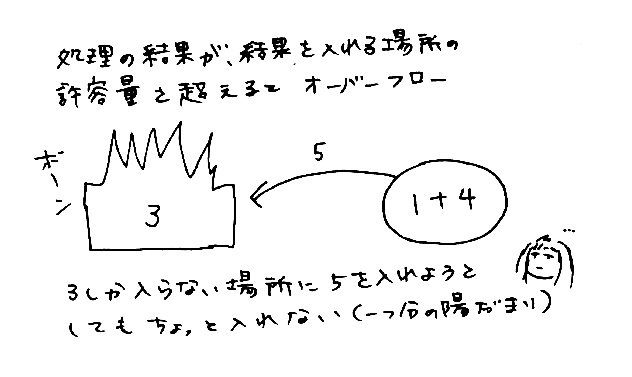 処理の結果が、結果を入れる場所の
許容量を超えると オーバーフロー
ボーン
3
5
1+4
…
3しか入らない場所に5を入れようと
してもちょっと入れない(一つ分の陽だまり)